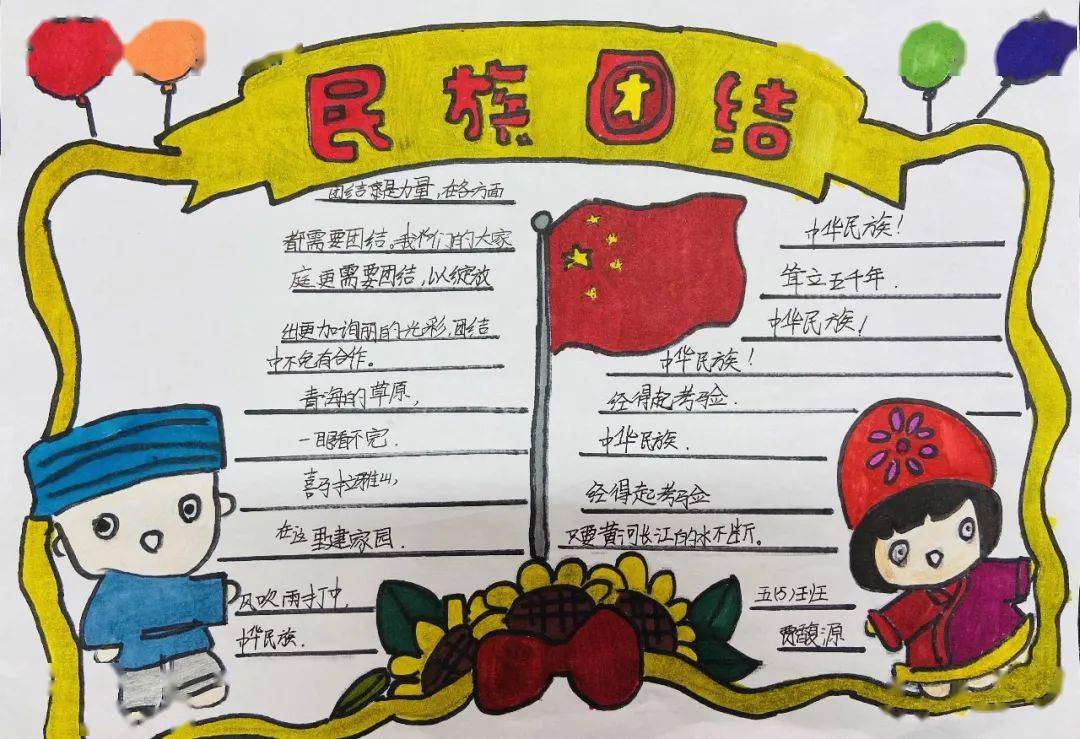 民族团结
团结就是力量，在各方面
都需要团结。我们的大家
庭更需要团结，以绽放
出更加绚丽的光彩，团结
中不免有合作。
青海的草原，
一眼看不完．
喜马拉雅山，
在这里建家园．
风吹雨打中，
中华民族．
中华民族！
耸立五千年．
中华民族！
中华民族！
经得起考验．
中华民族．
经得起考验
只要黄河长江的水不断。
五(5)班
贾馥源